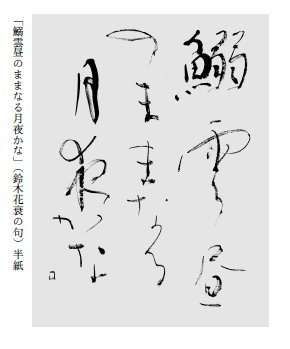 鰯雲昼
のままなる
月夜かな
「鰯雲昼のままなる月夜かな」（鈴木花蓑の句）半紙